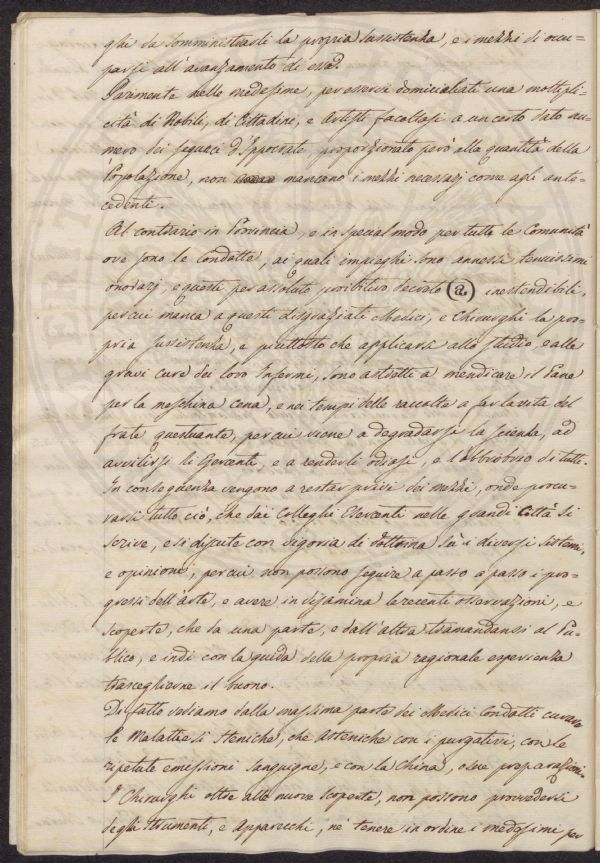 ghi da somministrarsi la propria sussistenza, e i mezzi di occu=
parsi all'avanzamento di essa.
Parimente nelle medesime, per esservi domiciliati una moltipli=
cità di Nobili, di Cittadini, e Artisti facoltosi a un certo dato nu=
mero dei seguaci d'Ippocrate proporzionato però alla quantità della
Popolazione, non mancano i mezzi necessarj come agli ante=
cedenti.
Al contrario in Provincia, e in special modo per tutte le Comunità
ove sono le condotte, ai quali impieghi sono annessi tenuissimi
onorarj, e questi per assoluto proibitivo decreto (a) inestendibili,
per cui manca a questi disgraziati Medici, e Chirurghi la pro=
pria sussistenza, e piuttosto che applicarsi allo studio, e alle
gravi cure dei loro Infermi, sono astretti a mendicare il Pane
per la meschina cena, e nei tempi delle raccolte a far la vita del
frate questuante, per cui viene a degradarsi la scienza, ad
avvilirsi li Esercenti, e a renderli odiosi, e l'obbrobrio di tutti.
In conseguenza vengono a restar privi dei mezzi, onde procu=
rarsi tutto ciò, che dai Colleghi Esercenti nelle grandi Città si
scrive, e si discute con vigoria di dottrina sù i diversi sistemi,
e opinioni, per cui non possono seguire a passo a passo i pro=
gressi dell'arte, e avere in disamina le recenti osservazioni, e
scoperte, che da una parte, e dall'altra tramandansi al Pu=
blico, e indi con la guida della propria ragionale esperienza
trasceglierne il buono.
Di fatto vediamo dalla massima parte dei Medici Condotti curare
le Malattie sì steniche, che asteniche con i purgativi, con le
ripetute emissioni sanguigne, e con la China, o sue preparazioni.
I Chirurghi oltre alle nuove scoperte, non possono provvedersi
degli strumenti, e Apparecchi, nè tenere in ordine i medesimi per